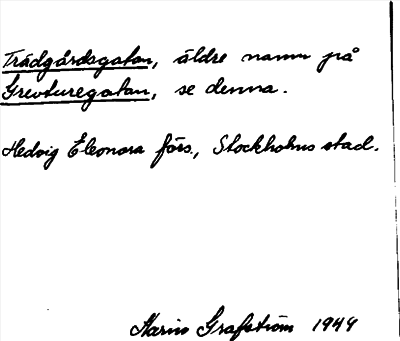 Trädgårdsgatan, äldre namn på
Grevturegatan, se denna.
Hedvig Eleonora förs., Stockholms stad.
Karin Grafström 1949